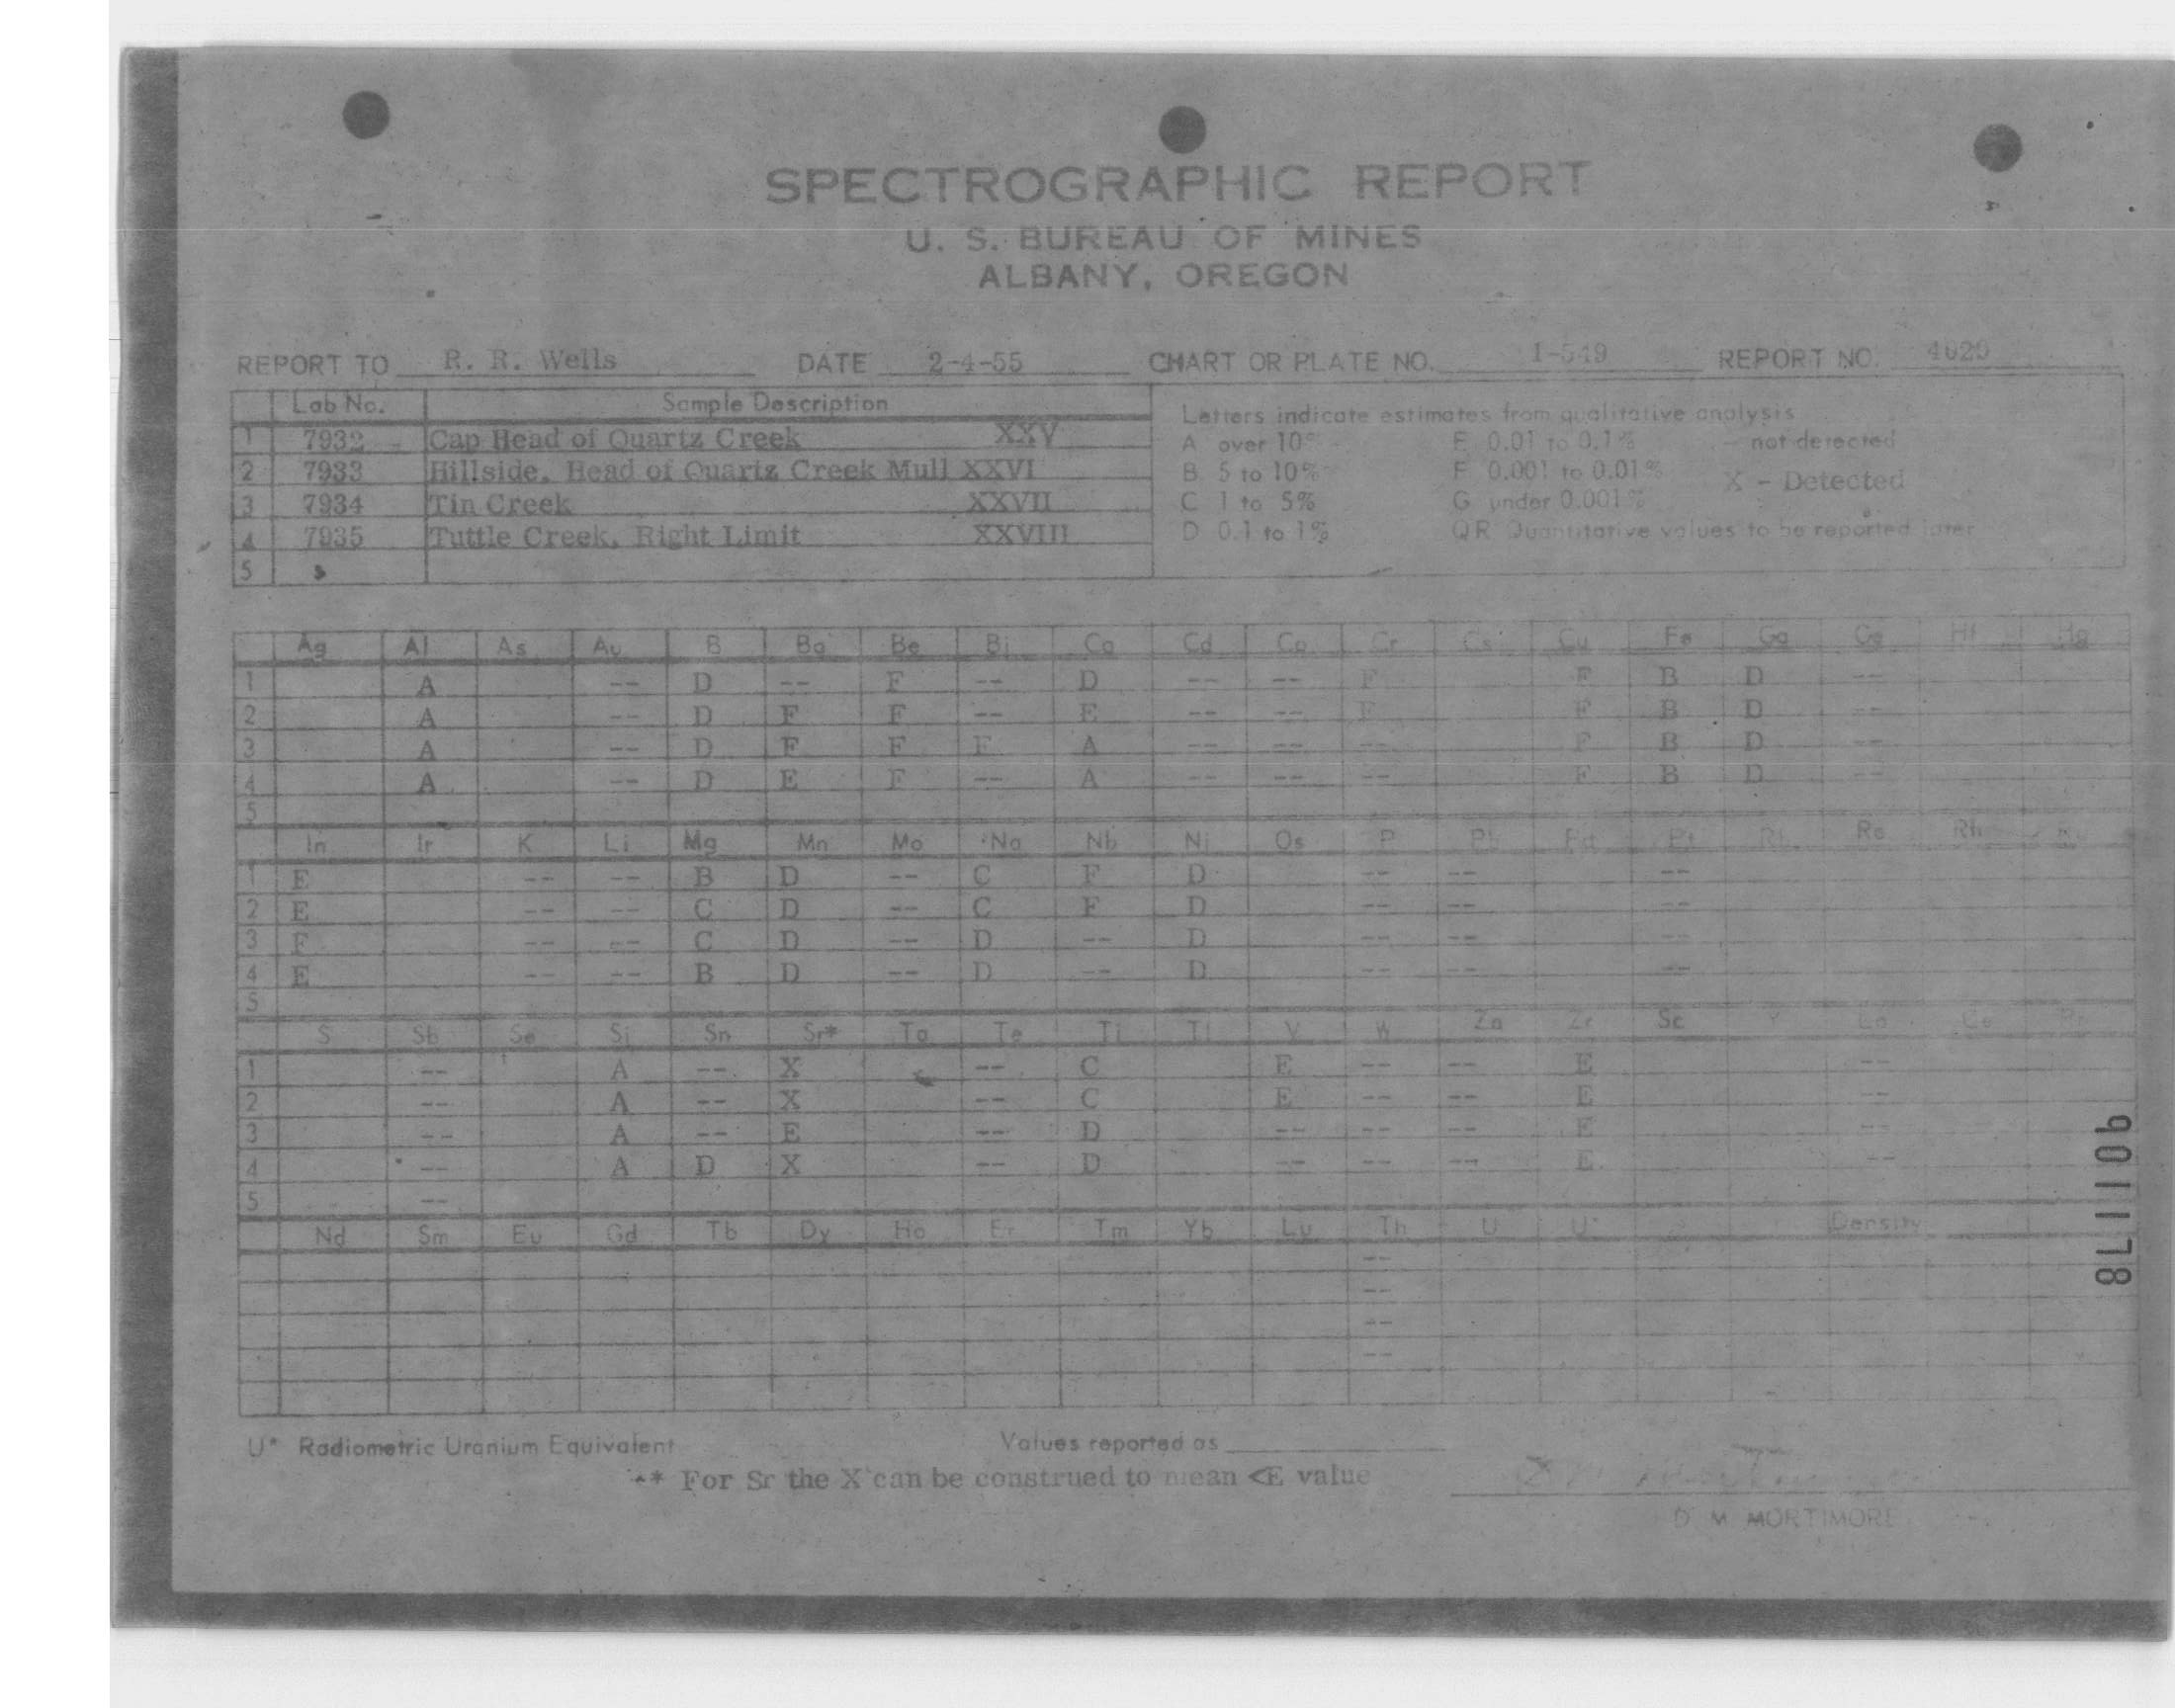 SPECTROGRAPHIC REPORT
U. S. BUREAU OF MINES
ALBANY, OREGON
REPORT TO R. R. Wells DATE 2-4-55 CHART OR PLATE NO. 1-549 REPORT NO. 4029
Lab No. Sample Description
1 7932 Cap Head of Quartz Creek XXV
2 7933 Hillside, Head of Quartz Creek Mull XXVI
3 7934 Tin Creek XXVII
4 7935 Tuttle Creek, Right Limit XXVIII
5
Letters indicate estimates from qualitative analysis
A over 10% E 0.01 to 0.1% - not detected
B 5 to 10% F 0.001 to 0.01% X - Detected
C 1 to 5% G under 0.001%
D 0.1 to 1% QR Quantitative values to be reported later
Ag Al As Au B Ba Be Bi Ca Cd Co Cr Cs Cu Fe Ga Ge Hf Hg
1 A -- D -- F -- D -- -- F F B D --
2 A -- D F F -- E -- -- F F B D --
3 A -- D F F F A -- -- -- F B D --
4 A -- D E F -- A -- -- -- F B D --
5
In Ir K Li Mg Mn Mo Na Nb Ni Os P Pb Pd Pt Rb Re Rh
1 E -- -- B D -- C F D -- -- --
2 E -- -- C D -- C F D -- -- --
3 F -- -- C D -- D -- D -- -- --
4 E -- -- B D -- D -- D -- -- --
5
S Sb Se Si Sn Sr* Ta Te Ti Tl V W Zn Zr Sc Y La Ce
1 -- A -- X -- C E -- -- E --
2 -- A -- X -- C E -- -- E --
3 -- A -- E -- D -- -- -- E --
4 -- A D X -- D -- -- -- E --
5 --
Nd Sm Eu Gd Tb Dy Ho Er Tm Yb Lu Th U U* Density
--
--
--
--
U* Radiometric Uranium Equivalent Values reported as
** For Sr the X can be construed to mean <E value
D M MORTIMORE
901178